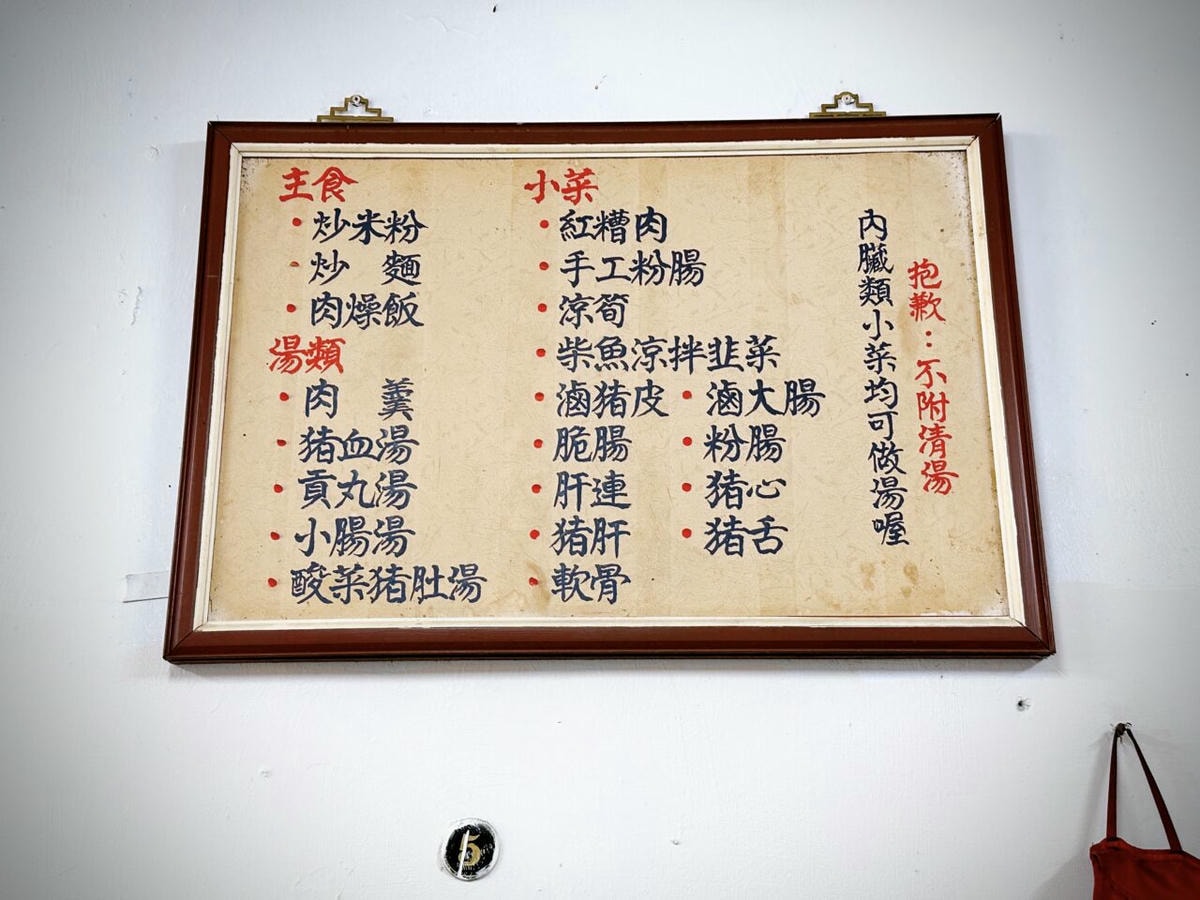 主食
炒米粉
炒　麵
肉燥飯
湯類
肉　羹
猪血湯
貢丸湯
小腸湯
酸菜猪肚湯
小菜
紅糟肉
手工粉腸
涼筍
柴魚涼拌韭菜
滷猪皮
脆腸
肝連
猪肝
軟骨
滷大腸
粉腸
猪心
猪舌
抱歉：不附清湯
內臟類小菜均可做湯喔
5